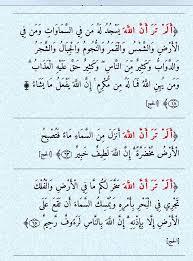 ﴿أَلَمْ تَرَ أَنَّ اللَّهَ يَسْجُدُ لَهُ مَن فِي السَّمَاوَاتِ وَمَن فِي
الْأَرْضِ وَالشَّمْسُ وَالْقَمَرُ وَالنُّجُومُ وَالْجِبَالُ وَالشَّجَرُ
وَالدَّوَابُّ وَكَثِيرٌ مِّنَ النَّاسِ ۖ وَكَثِيرٌ حَقَّ عَلَيْهِ الْعَذَابُ ۗ
وَمَن يُهِنِ اللَّهُ فَمَا لَهُ مِن مُّكْرِمٍ ۚ إِنَّ اللَّهَ يَفْعَلُ مَا يَشَاءُ ۩
﴿١٨﴾ [الحج]
﴿أَلَمْ تَرَ أَنَّ اللَّهَ أَنزَلَ مِنَ السَّمَاءِ مَاءً فَتُصْبِحُ
الْأَرْضُ مُخْضَرَّةً ۗ إِنَّ اللَّهَ لَطِيفٌ خَبِيرٌ ﴿٦٣﴾ [الحج]
﴿أَلَمْ تَرَ أَنَّ اللَّهَ سَخَّرَ لَكُم مَّا فِي الْأَرْضِ وَالْفُلْكَ
تَجْرِي فِي الْبَحْرِ بِأَمْرِهِ وَيُمْسِكُ السَّمَاءَ أَن تَقَعَ عَلَى
الْأَرْضِ إِلَّا بِإِذْنِهِ ۗ إِنَّ اللَّهَ بِالنَّاسِ لَرَءُوفٌ رَّحِيمٌ
﴿٦٥﴾ [الحج]